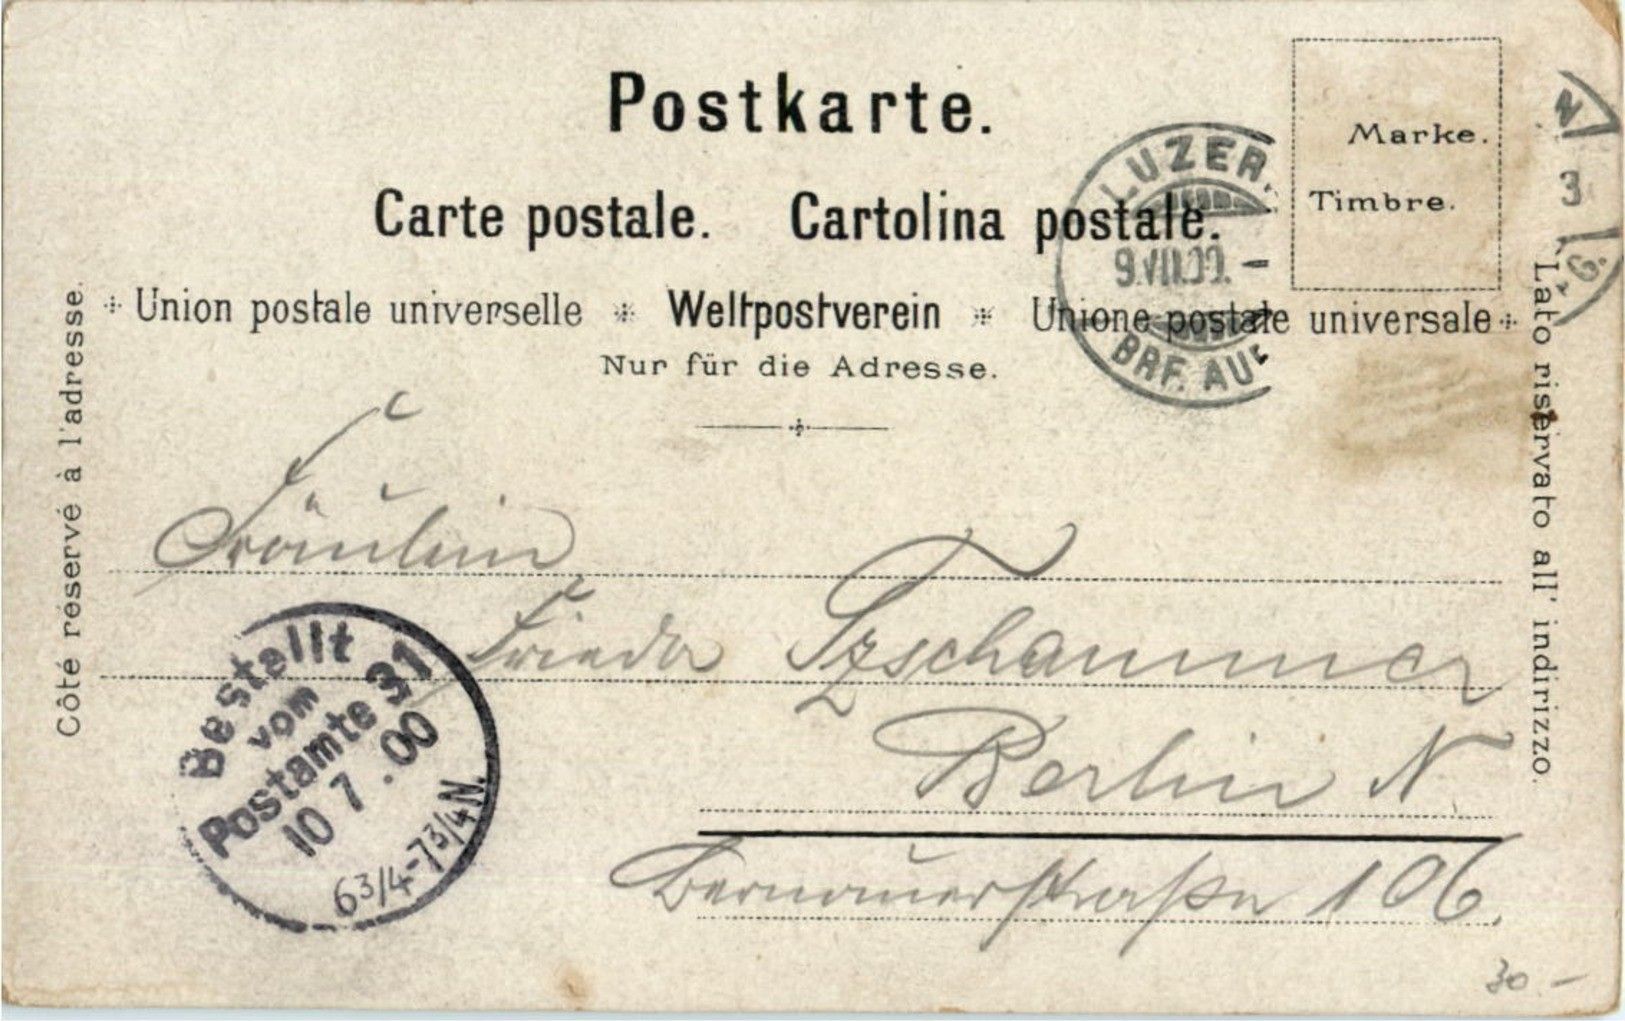 Postkarte.
Marke.
Timbre.
Carte postale. Cartolina postale.
Union postale universelle Weltpostverein Unione postale universale
Nur für die Adresse.
Côté réservé à l'adresse.
Lato riservato all' indirizzo.
LUZER
9.VII.00. –
BRF. AU
N
3
G.
Fräulein
Frieda Tzschammer
Berlin N.
Bernauerstraße 106.
Bestellt
vom
Postamte 31
10 7. 00
6 3/4-7 3/4 N.
30.-